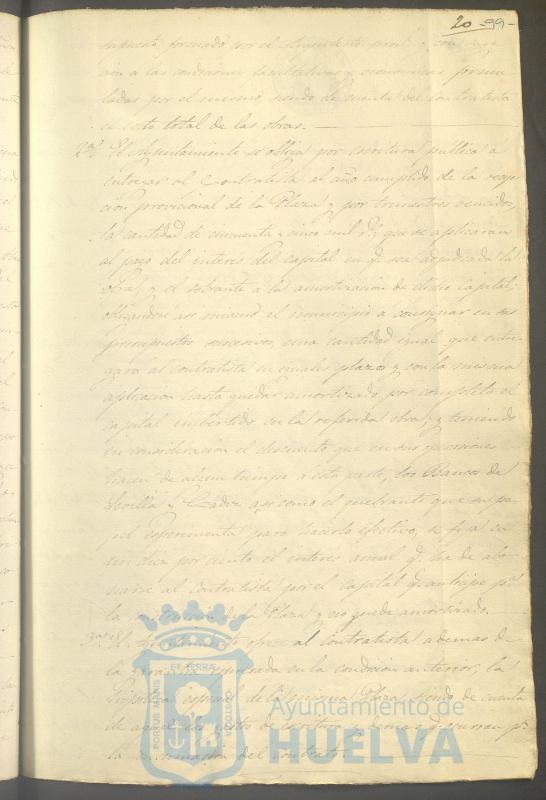 20 - 99 -
supuesto formado por el Arquitecto prov.l y con suje
cion a las condiciones facultativas y economicas formu
ladas por el mismo, siendo de cuenta del contratista
el costo total de las obras. —
2.a El Ayuntamiento se obliga por escritura publica a
entregar al Contratista al año cumplido de la recep
cion provisional de la Plaza y por trimestres vencidos,
la cantidad de cincuenta y cinco mil r.s que se aplicaran
al pago del interes del capital en q.e sea adjudicada la
obra, y el sobrante a la amortizacion de dicho capital;
obligandose asi mismo el municipio a consignar en sus
presupuestos sucesivos, una cantidad igual que entre
gara al contratista en iguales plazos y con la misma
aplicacion hasta quedar amortizado por completo el
capital imbertido en la referida obra; y teniendo
en consideracion el descuento que en sus operaciones
hacen de algun tiempo a esta parte, los Bancos de
Sevilla y Cadiz asi como el quebranto que su pa
pel esperimenta para hacerlo efectivo, se fija en
un diez por ciento el interes anual q.e ha de abo
narse al Contratista por el capital q.e anticipe p.a
la construccion de la Plaza y no quede amortizado.
3.a El Ayuntamiento ofrece al contratista ademas de
la garantia espresada en la condicion anterior, la
hipoteca especial de la misma Plaza, siendo de cuenta
de aquel los gastos de escritura y demas q.e ocurran p.a
la consumacion del contrato.
ET TERRÆ
PORTUS MARIS
CUSTODIA
Ayuntamiento de
HUELVA